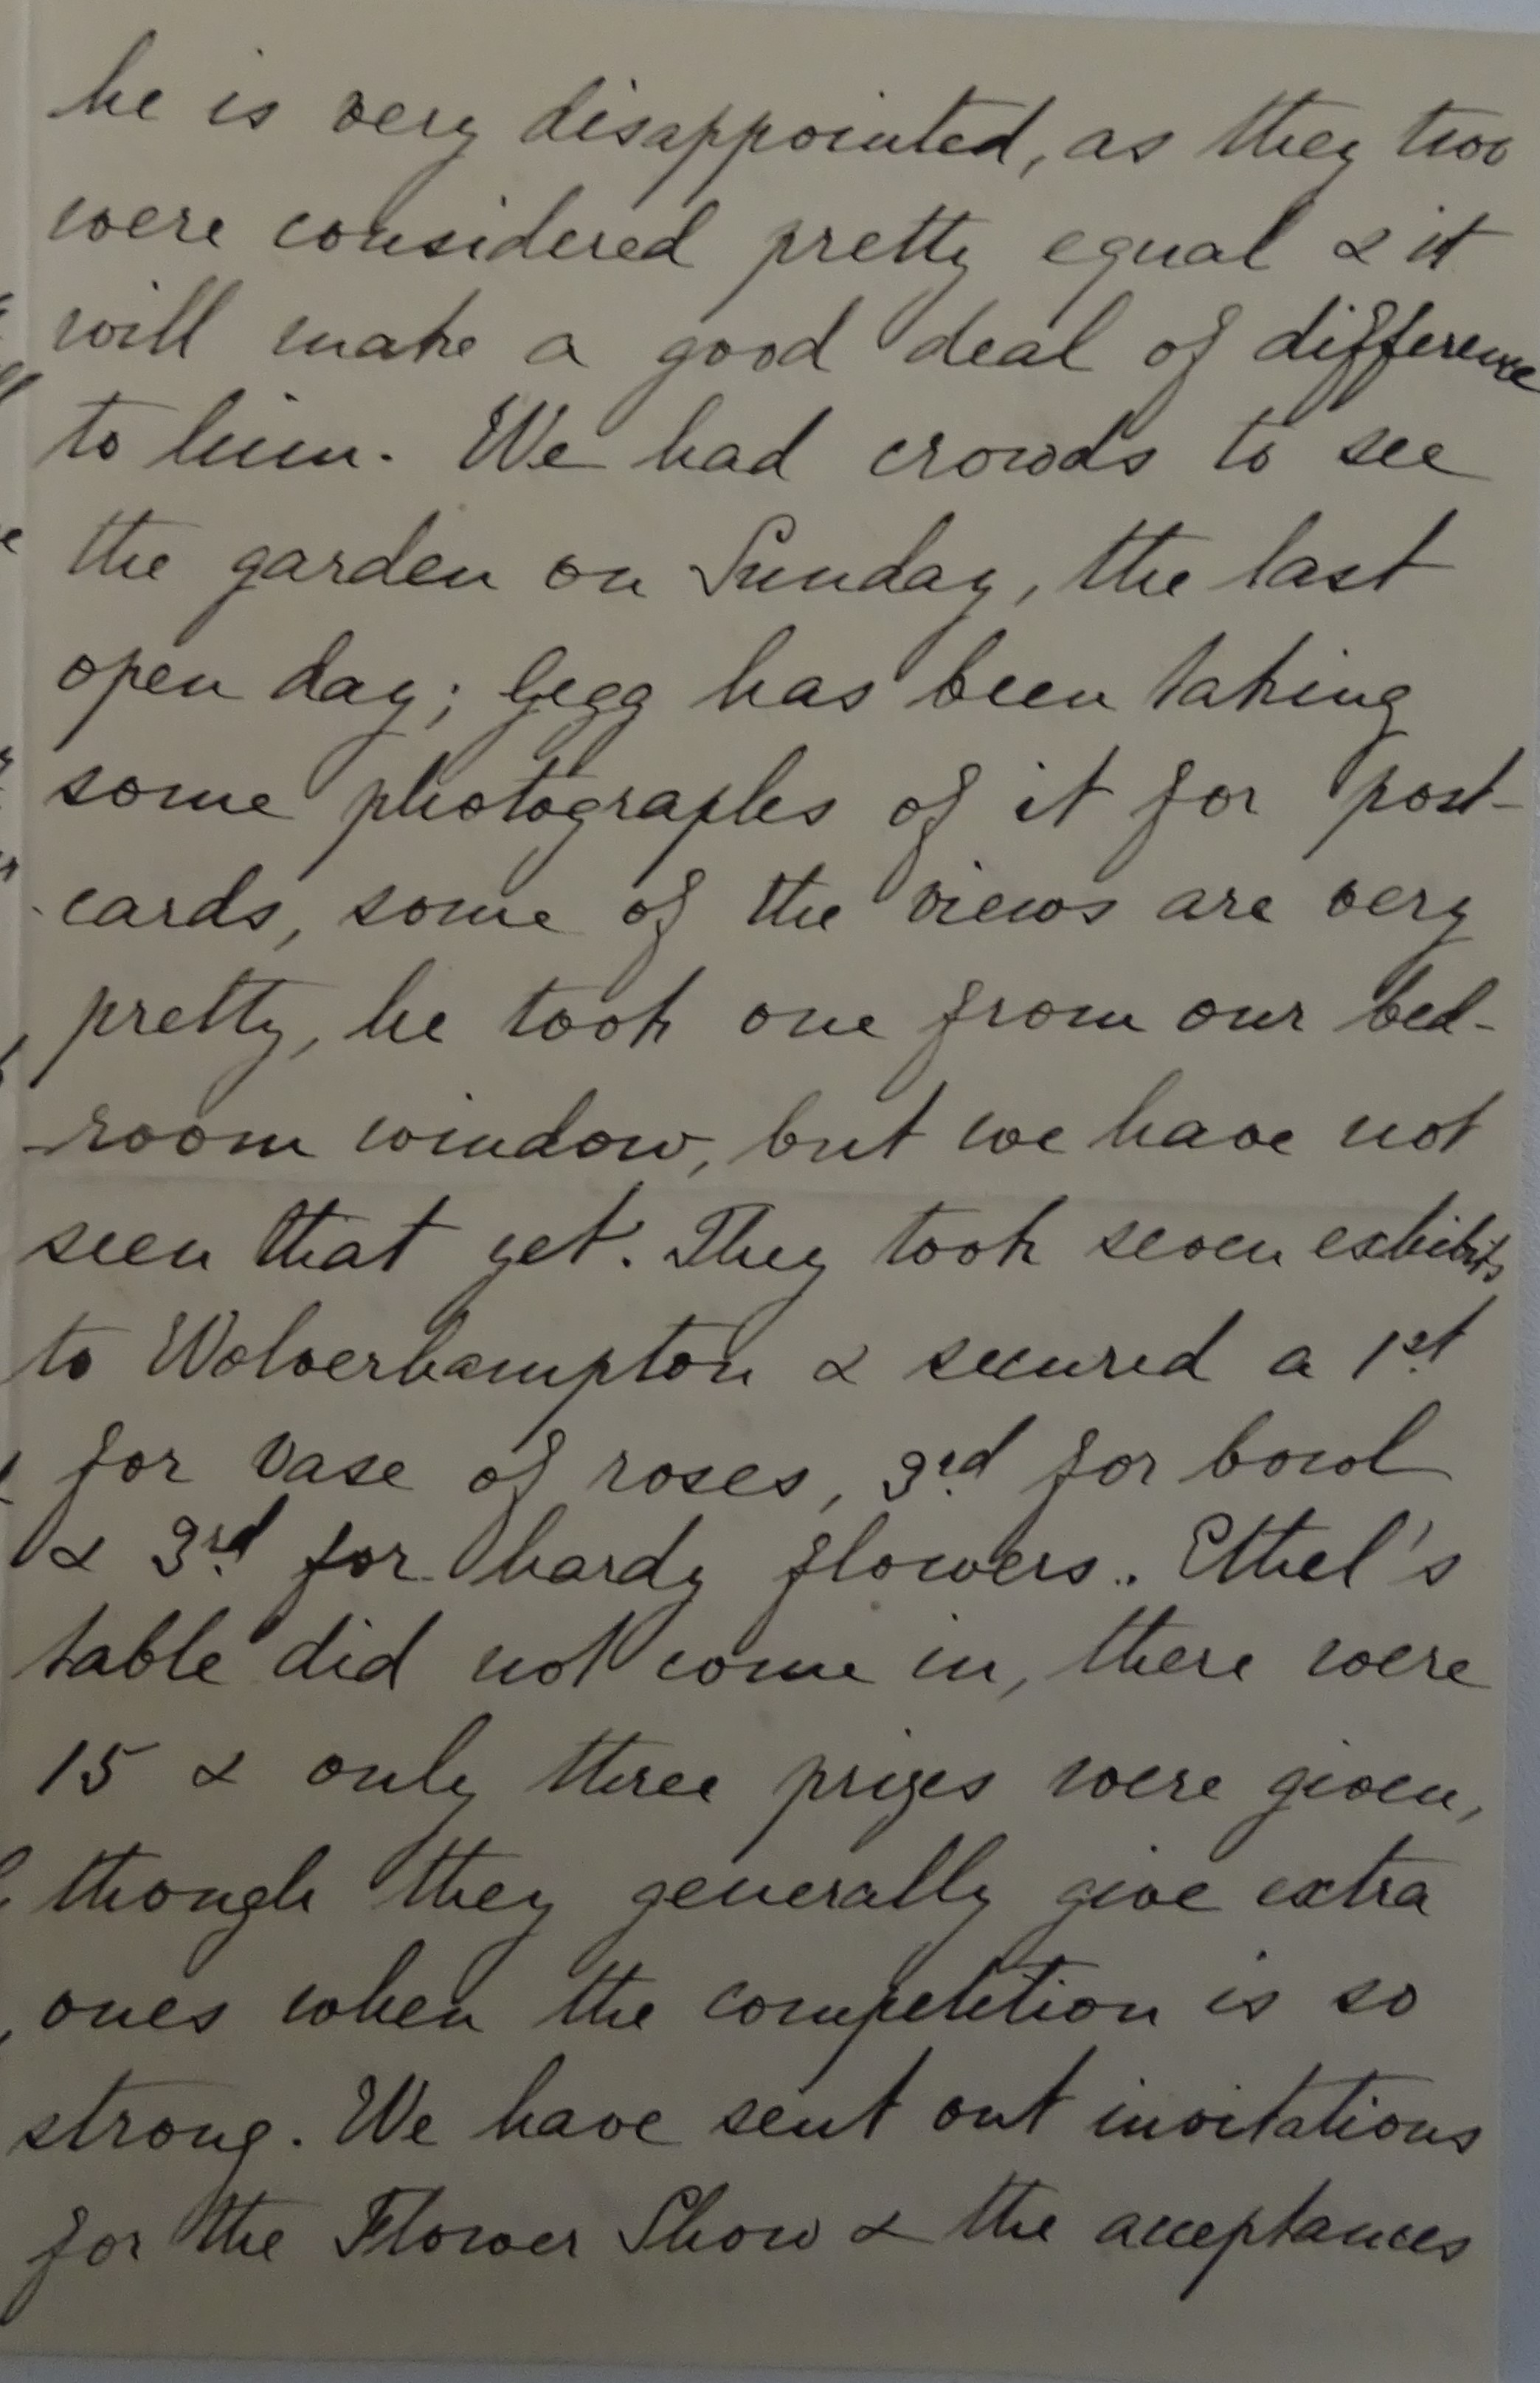 he is very disappointed, as they two
were considered pretty equal & it
will make a good deal of difference
to him. We had crowds to see
the garden on Sunday, the last
open day; Gegg has been taking
some photographs of it for post-
cards, some of the views are very
pretty, he took one from our bed-
-room window, but we have not
seen that yet. They took seven exhibits
to Wolverhampton & secured a 1st
for vase of roses, 3rd for bowl
& 3rd for hardy flowers.. Ethel's
table did not come in, there were
15 & only three prizes were given,
though they generally give extra
ones when the competition is so
strong. We have sent out invitations
for the Flower Show & the acceptances